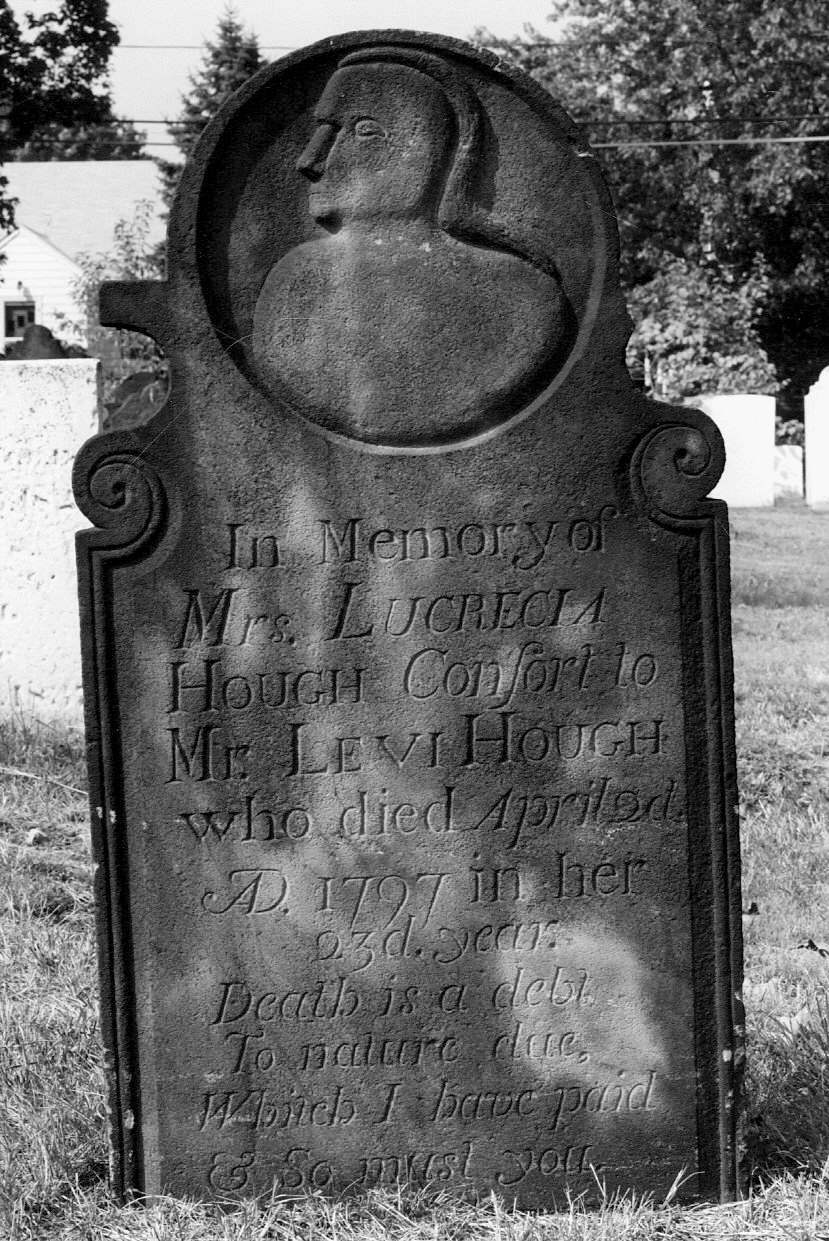 In Memory of
Mrs. LUCRECIA
HOUGH Conſort to
Mr. LEVI HOUGH
who died April 2d.
AD. 1797 in her
23d. year.
Death is a debt
To nature due,
Which I have paid
& So must you